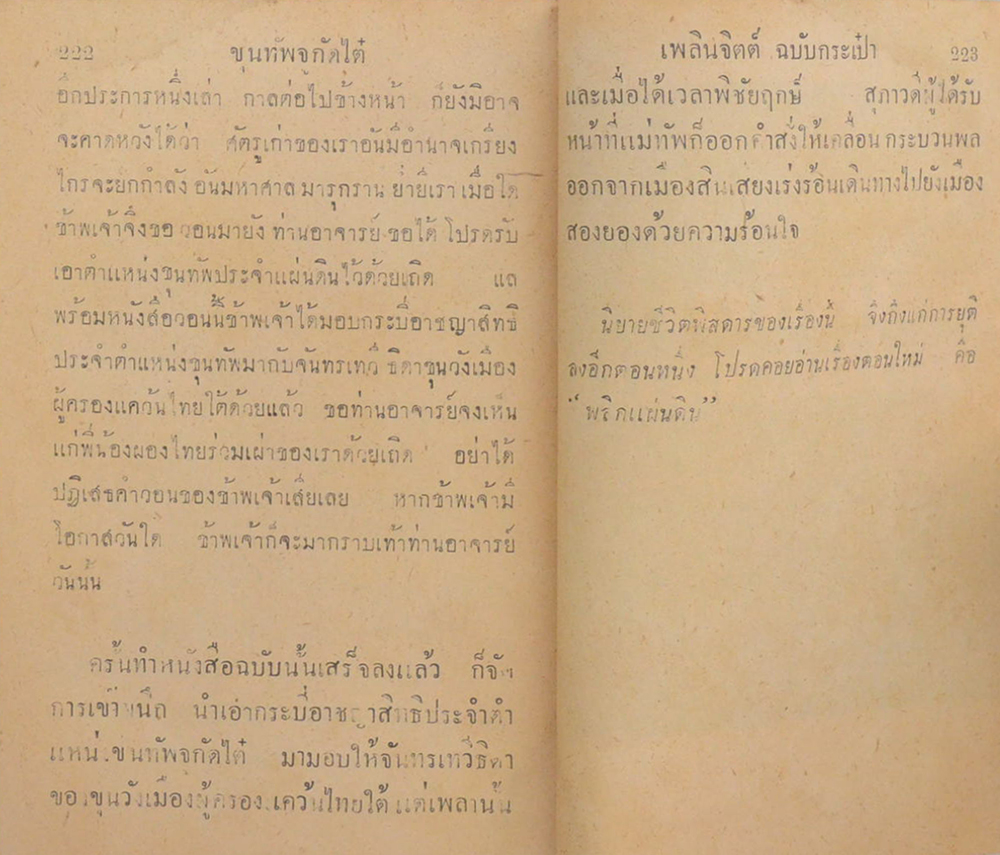 222 ขุนทัพจกัดไต๋
อีกประการหนึ่งเล่า กาลต่อไปข้างหน้า ก็ยังมีอาจ
จะคาดหวังได้ว่า ศัตรูเก่าของเราอันมีอำนาจเกรียง
ไกรจะยกกำลัง อันมหาศาล มารุกราน ย่ำยีเรา เมื่อใด
ข้าพเจ้าจึงขอ วอนมายัง ท่านอาจารย์ ขอได้ โปรดรับ
เอาตำแหน่งขุนทัพประจำแผ่นดินไว้ด้วยเถิด แล
พร้อมหนังสือวอนนี้ข้าพเจ้าได้มอบกระบี่อาชญาสิทธิ
ประจำตำแหน่งขุนทัพมากับจันทรเทวี ธิดาขุนวังเมือง
ผู้ครองแคว้นไทยใต้ด้วยแล้ว ขอท่านอาจารย์จงเห็น
แก่พี่น้องผองไทยร่วมเผ่าของเราด้วยเถิด อย่าได้
ปฏิเสธคำวอนของข้าพเจ้าเสียเลย หากข้าพเจ้ามี
โอกาสวันใด ข้าพเจ้าก็จะมากราบเท้าท่านอาจารย์
วันนั้น
ครั้นทำหนังสือฉบับนั้นเสร็จลงแล้ว ก็จัด
การเข้าผนึก นำเอากระบี่อาชญาสิทธิประจำตำ
แหน่งขุนทัพจกัดไต๋ มามอบให้จันทรเทวีธิดา
ของขุนวังเมืองผู้ครองแคว้นไทยใต้ แต่เพลานั้น
เพลินจิตต์ ฉบับกระเป๋า 223
และเมื่อได้เวลาพิชัยฤกษ์ สุภาวดีผู้ได้รับ
หน้าที่แม่ทัพก็ออกคำสั่งให้เคลื่อน กระบวนพล
ออกจากเมืองสินเสียงเร่งร้อนเดินทางไปยังเมือง
สองยองด้วยความร้อนใจ
นิยายชีวิตพิสดารของเรื่องนี้ จึงถึงแก่การยุติ
ลงอีกตอนหนึ่ง โปรดคอยอ่านเรื่องตอนใหม่ คือ
“พลิกแผ่นดิน”